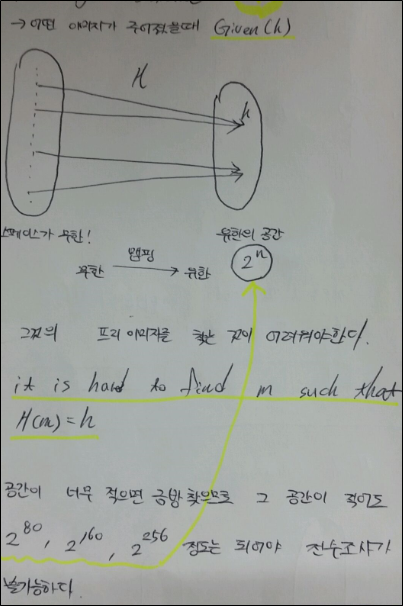 → 어떤 이미지가 주어졌을때 Given(h)
H
h
스페이스가 무한!
유한의 공간
무한 맵핑 → 유한 2^n
그것의 프리 이미지를 찾는 것이 어려워야한다.
it is hard to find m such that
H(m) = h
공간이 너무 적으면 금방 찾으므로 그 공간이 적어도
2^80, 2^160, 2^256 정도는 되어야 전수조사가
불가능하다.